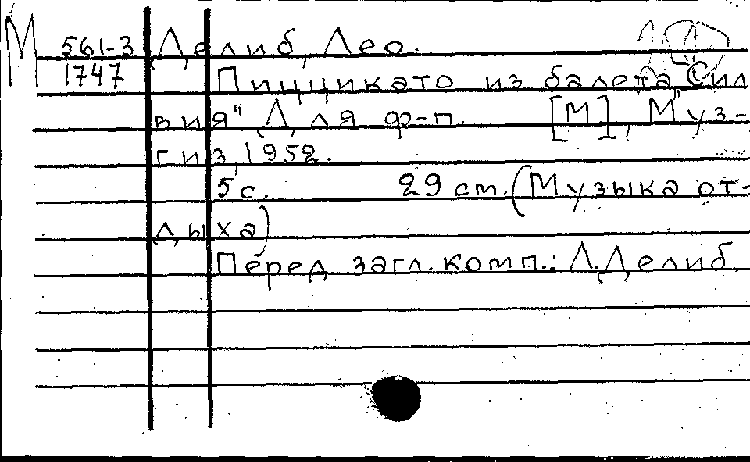 М 561-3 Делиб, Лео.
1747 Пиццикато из балета „Сил
вия" Для ф-п. [М], Муз-
гиз, 1952.
5 с. 29 см. (Музыка от-
дыха)
Перед загл. комп.: Л. Делиб.